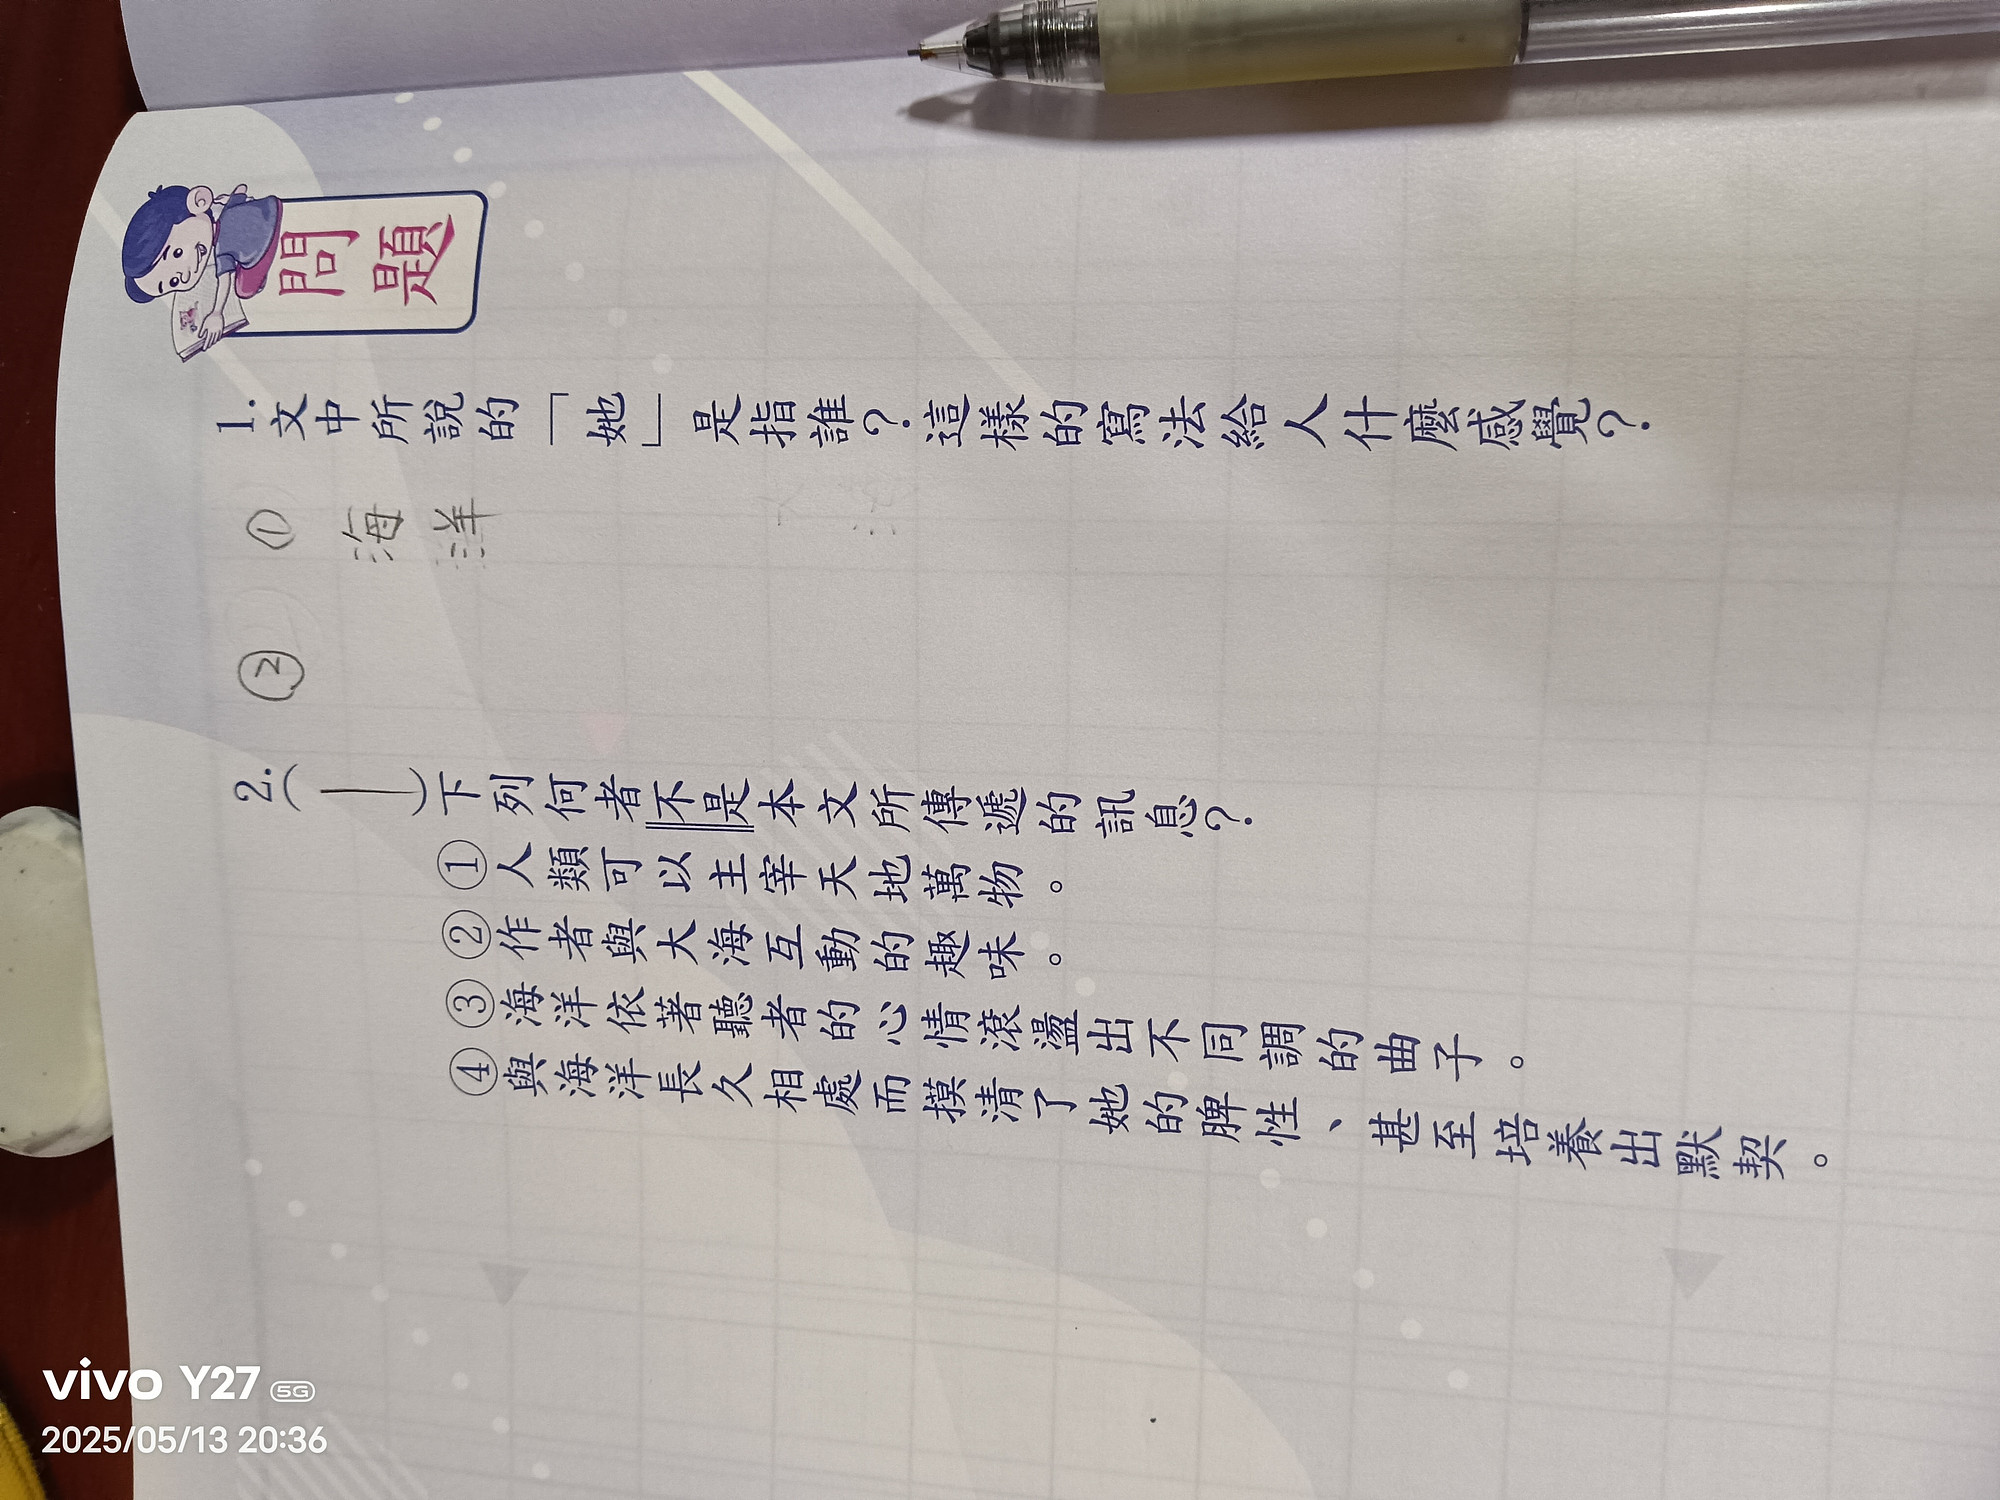 問題
1.文中所說的「她」是指誰？這樣的寫法給人什麼感覺？
① 海洋
②
2.( 1 )下列何者不是本文所傳遞的訊息？
①人類可以主宰天地萬物。
②作者與大海互動的趣味。
③海洋依著聽者的心情滾盪出不同調的曲子。
④與海洋長久相處而摸清了她的脾性、甚至培養出默契。
vivo Y27 5G
2025/05/13 20:36